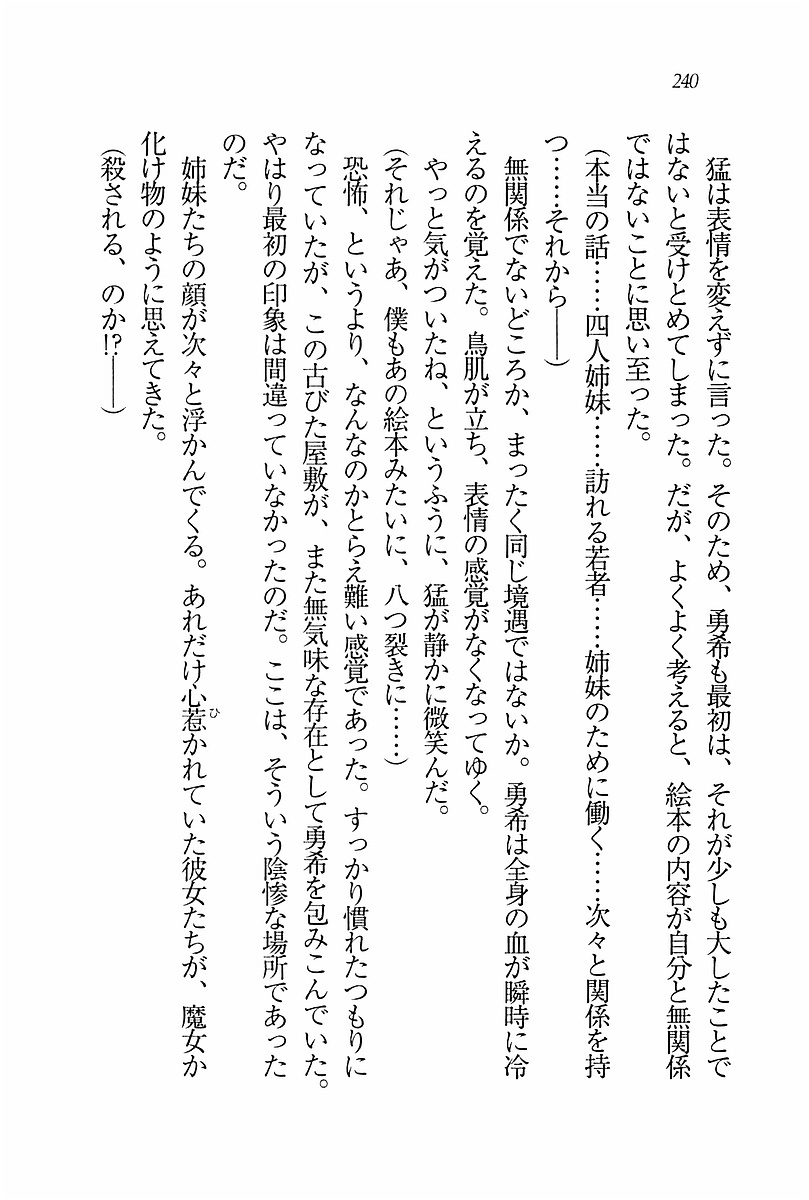 240
猛は表情を変えずに言った。そのため、勇希も最初は、それが少しも大したことで
はないと受けとめてしまった。だが、よくよく考えると、絵本の内容が自分と無関係
ではないことに思い至った。
(本当の話……四人姉妹……訪れる若者……姉妹のために働く……次々と関係を持
つ……それから――)
無関係でないどころか、まったく同じ境遇ではないか。勇希は全身の血が瞬時に冷
えるのを覚えた。鳥肌が立ち、表情の感覚がなくなってゆく。
やっと気がついたね、というふうに、猛が静かに微笑んだ。
(それじゃあ、僕もあの絵本みたいに、八つ裂きに……)
恐怖、というより、なんなのかとらえ難い感覚であった。すっかり慣れたつもりに
なっていたが、この古びた屋敷が、また無気味な存在として勇希を包みこんでいた。
やはり最初の印象は間違っていなかったのだ。ここは、そういう陰惨な場所であった
のだ。
姉妹たちの顔が次々と浮かんでくる。あれだけ心惹かれていた彼女たちが、魔女か
ひ
化け物のように思えてきた。
(殺される、のか!?――)